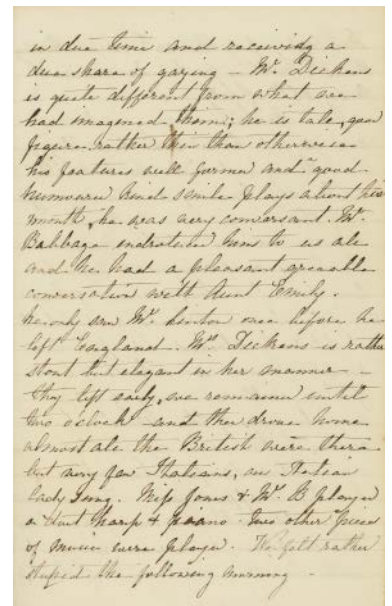 in due time and receiving a
due share of gazing – Mr. Dickens
is quite different from what we
had imagined him; he is tale, good
figure rather thin than otherwise
his features well formed and good
humoured kind smile plays about his
mouth, he was very conversant. Mr.
Babbage introduced him to us all
and he had a pleasant agreeable
conversation with Aunt Emily.
he only saw Mr. once before he
left England. Mrs. Dickens is rather
stout but elegant in her manner –
they left early, we remained until
two o'clock and then drove home
almost all the British were there
but very few Italians, an Italian
lady sung. Miss Jones & Mr. B played
a duet Harp & piano. two other piece
of music were played. We felt rather
stupid the following morning –